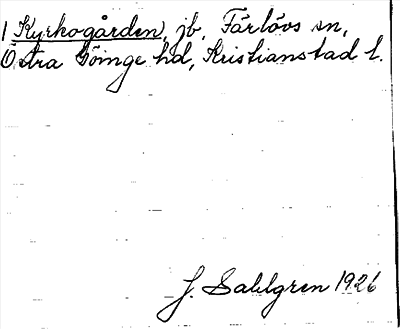 1 Kyrkogården, jb. Färlövs sn,
Östra Göinge hd, Kristianstad l.
J. Sahlgren 1926